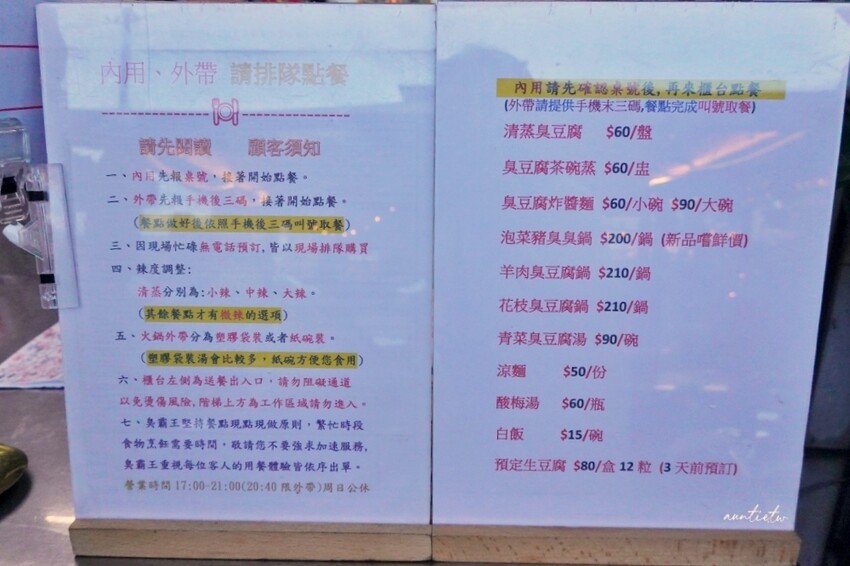 內用、外帶 請排隊點餐
請先閱讀 顧客須知
一、內用先報桌號，接著開始點餐。
二、外帶先報手機後三碼，接著開始點餐。
(餐點做好後依照手機後三碼叫號取餐)
三、因現場忙碌無電話預訂,皆以現場排隊購買
四、辣度調整:
清蒸分別為:小辣、中辣、大辣。
(其餘餐點才有微辣的選項)
五、火鍋外帶分為塑膠袋裝或者紙碗裝。
(塑膠袋裝湯會比較多，紙碗方便您食用)
六、櫃台左側為送餐出入口，請勿阻礙通道
以免燙傷風險,階梯上方為工作區域請勿進入。
七、臭霸王堅持餐點現點現做原則，繁忙時段
食物烹飪需要時間，敬請您不要強求加速服務,
臭霸王重視每位客人的用餐體驗皆依序出單。
營業時間17:00-21:00(20:40限外帶)周日公休
內用請先確認桌號後,再來櫃台點餐
(外帶請提供手機末三碼,餐點完成叫號取餐)
清蒸臭豆腐 $60/盤
臭豆腐茶碗蒸 $60/盅
臭豆腐炸醬麵 $60/小碗 $90/大碗
泡菜豬臭臭鍋 $200/鍋 (新品嚐鮮價)
羊肉臭豆腐鍋 $210/鍋
花枝臭豆腐鍋 $210/鍋
青菜臭豆腐湯 $90/碗
涼麵 $50/份
酸梅湯 $60/瓶
白飯 $15/碗
預定生豆腐 $80/盒 12 粒 (3 天前預訂)
auntietw